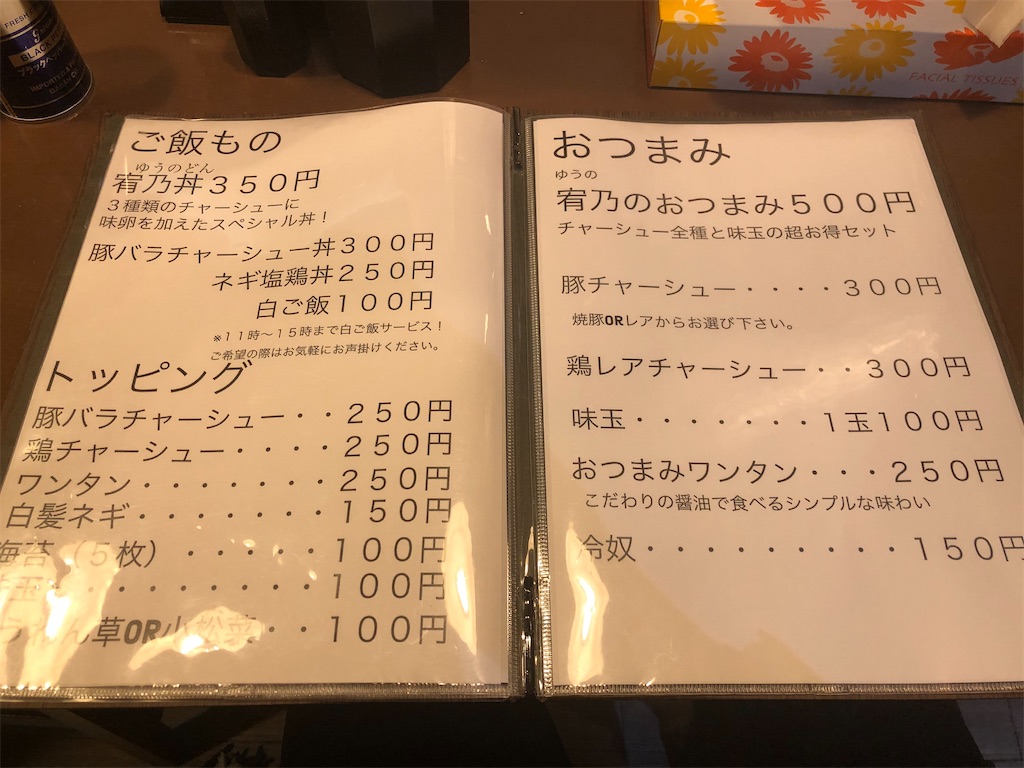 FRESH
BLACK
ブラックペッパー
FACIAL TISSUES
ご飯もの
ゆうのどん
宥乃丼３５０円
３種類のチャーシューに
味卵を加えたスペシャル丼！
豚バラチャーシュー丼３００円
ネギ塩鶏丼２５０円
白ご飯１００円
※１１時～１５時まで白ご飯サービス！
ご希望の際はお気軽にお声掛けください。
トッピング
豚バラチャーシュー・・２５０円
鶏チャーシュー・・・・２５０円
ワンタン・・・・・・・２５０円
白髪ネギ・・・・・・・１５０円
海苔（５枚）・・・・・１００円
玉・・・・・・・・１００円
草OR小松菜・・１００円
おつまみ
ゆうの
宥乃のおつまみ５００円
チャーシュー全種と味玉の超お得セット
豚チャーシュー・・・・３００円
焼豚ORレアからお選び下さい。
鶏レアチャーシュー・・３００円
味玉・・・・・・・１玉１００円
おつまみワンタン・・・２５０円
こだわりの醤油で食べるシンプルな味わい
冷奴・・・・・・・・・・１５０円